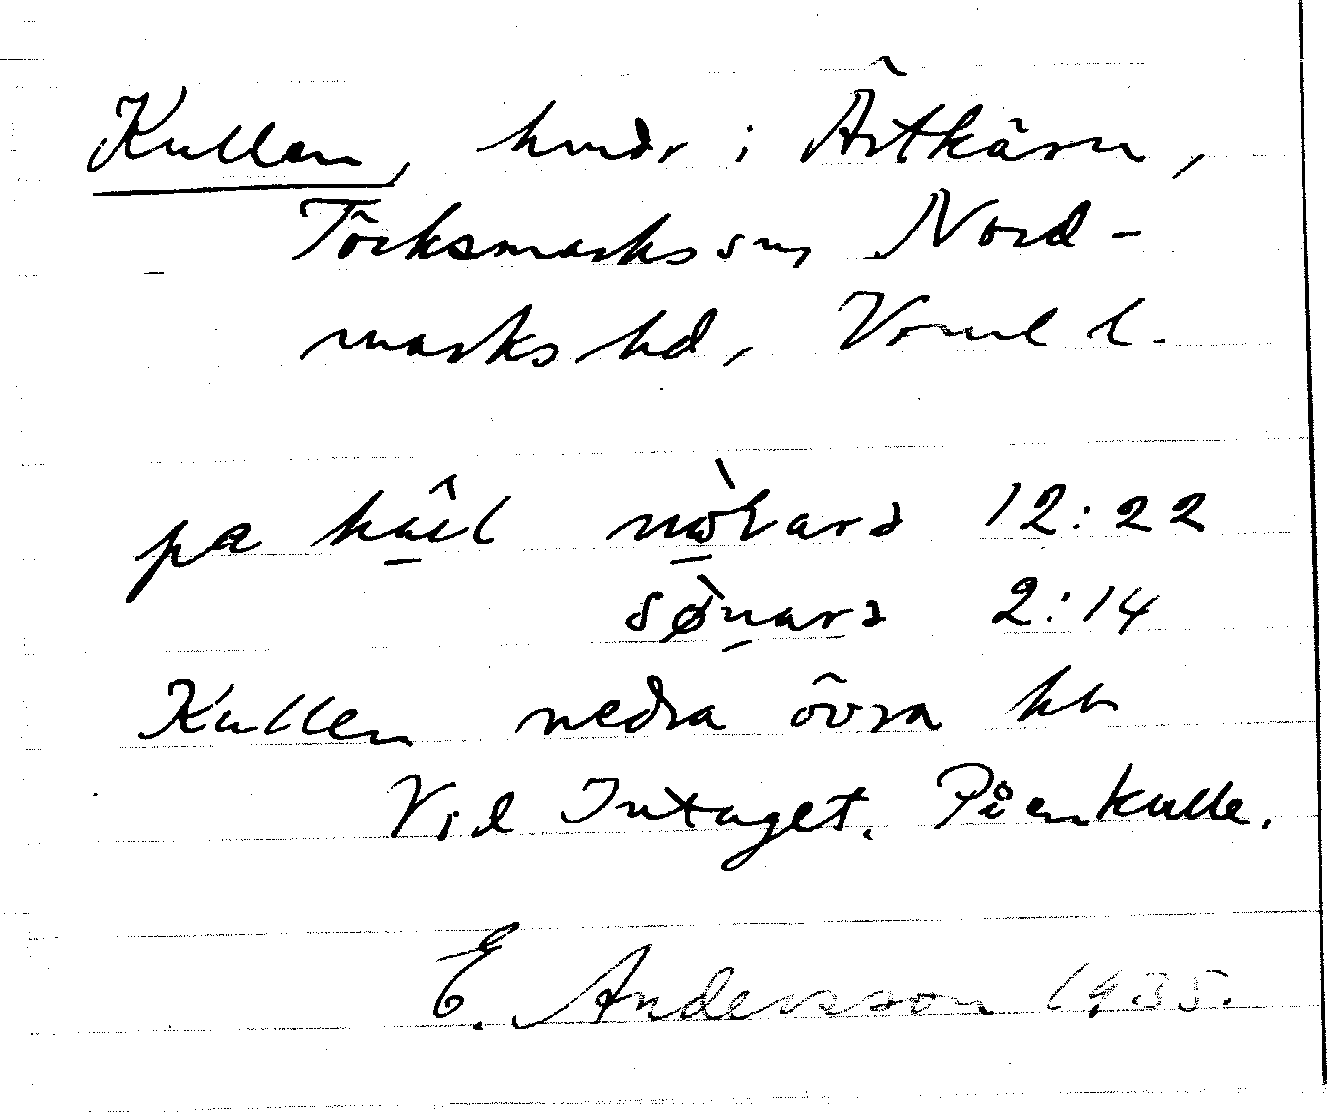 Kullen, hmdr i Ärtkärn,
Töcksmarks sn, Nord-
marks hd, Vrml l.
pa 12:22
2:14
Kullen nedra övra hb
Vid Intaget. På en kulle.
E. Andersson 1935.